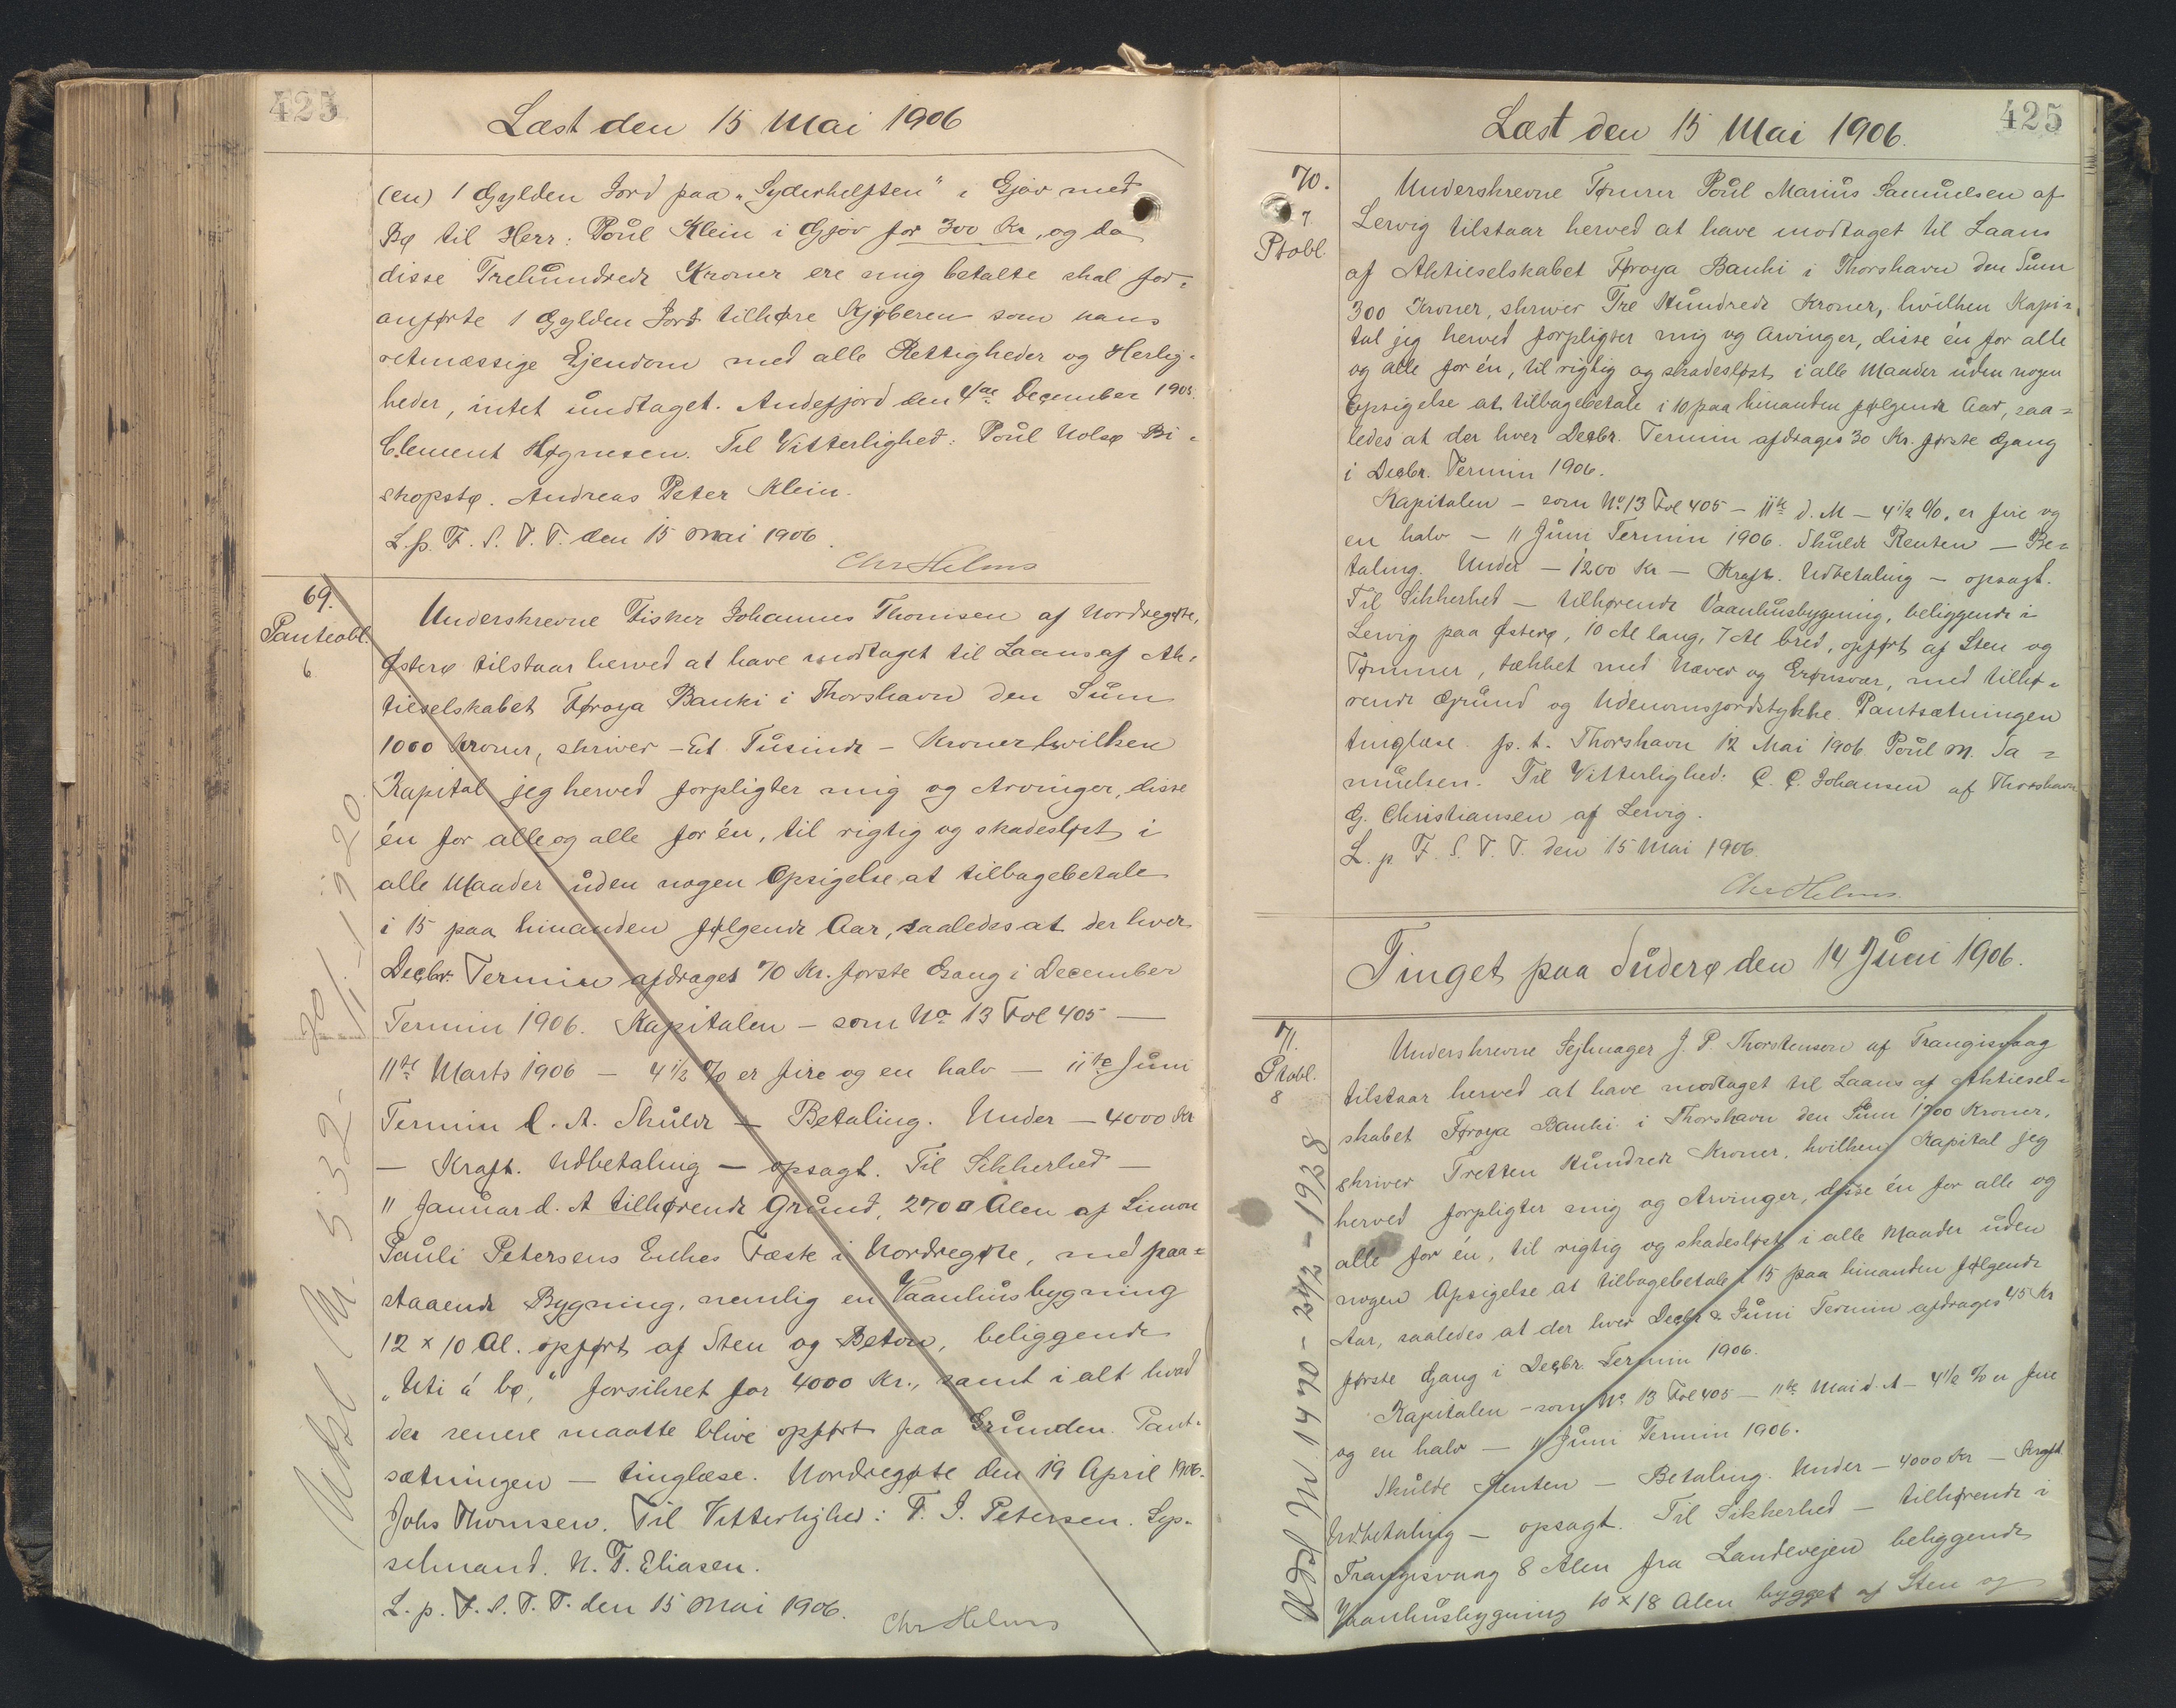 425
Læst den 15 Mai 1906
(en) 1 Gylden Jord paa "Syderhelften" i Gjov med
Bø til Herr: Poul Klein i Gjov for 300 Kr, og da
disse Trehundrede Kroner ere mig betalte skal for-
anførte 1 Gylden Jord tilhøre Kjøberen som hans
retmæssige Ejendom med alle Rettigheder og Herlig-
heder, intet undtaget. Andefjord den 4de December 1905.
Clement Høgnesen. Til Vitterlighed: Poul Nolsø Bi-
skopstø. Andreas Peter Klein.
L. p. F. S. V. T. den 15 Mai 1906.
Chr Helms
69.
Panteobl.
6
Underskrevne Fisker Johannes Thomsen af Nordregøte,
Østerø tilstaar herved at have modtaget til Laans af Ak-
tieselskabet Føroya Banki i Thorshavn den Sum
1000 Kroner, skriver - Et Tusinde - Kroner hvilken
Kapital jeg herved forpligter mig og Arvinger, disse
én for alle og alle for én, til rigtig og skadesløst i
alle Maader uden nogen Opsigelse at tilbagebetale
i 15 paa hinanden følgende Aar, saaledes at der hver
Decbr. Termin afdrages 70 Kr. første Gang i December
Termin 1906. Kapitalen - som No 13 Fol 405 -
11te Marts 1906 - 4 1/2 % er fire og en halv - 11te Juni
Termin d. A. Skulde - Betaling. Under - 4000 Kr
- Kraft. Udbetaling - opsagt. Til Sikkerhed -
11 Januar d. A tilhørende Grund, 270 □ Alen af Simon
Pauli Petersens Enkes Fæste i Nordregøte, med paa-
staaende Bygning, nemlig en Vaanhusbygning
12 x 10 Al. opført af Sten og Beton, beliggende
"Uti á bø," forsikret for 4000 Kr., samt i alt hvad
der senere maatte blive opført paa Grunden. Pant-
sætningen - tinglæse. Nordregøte den 19 April 1906.
Johs Thomsen. Til Vitterlighed: F. J. Petersen. Sys-
selmand. N. F. Eliasen.
L. p. F. S. V. T. den 15 Mai 1906.
Chr Helms
Udsl. No. 532- 20/11-1920.
425
Læst den 15 Mai 1906.
70.
7.
Ptobl.
Underskrevne Tømrer Poul Marius Samuelsen af
Lervig tilstaar herved at have modtaget til Laans
af Aktieselskabet Føroya Banki i Thorshavn den Sum
300 Kroner, skriver Tre Hundrede Kroner, hvilken Kapi-
tal jeg herved forpligter mig og Arvinger, disse én for alle
og alle for én, til rigtig og skadesløst i alle Maader uden nogen
Opsigelse at tilbagebetale i 10 paa hinanden følgende Aar, saa-
ledes at der hver Decbr. Termin afdrages 30 Kr. første Gang
i Decbr. Termin 1906.
Kapitalen - som No. 13 Fol 405 - 11te d. M - 4 1/2 %, er fire og
en halv - 11 Juni Termin 1906. Skulde Renten - Be-
taling. Under - 1200 Kr - Kraft. Udbetaling - opsagt.
Til Sikkerhed - tilhørende Vaanhusbygning, beliggende i
Lervig paa Østerø, 10 Al lang, 7 Al bred, opført af Sten og
Tømmer, tækket med Næver og Grønsvær, med tilhø-
rende Grund og Udenomsjordstykke. Pantsætningen
tinglæse. p. t. Thorshavn 12 Mai 1906 Poul M. Sa-
muelsen. Til Vitterlighed: C. C. Johansen af Thorshavn
G. Christiansen af Lervig.
L. p F. S. V. T. den 15 Mai 1906.
Chr Helms.
Tinget paa Suderø den 14 Juni 1906.
71.
Ptobl.
8
Underskrevne Sejlmager J. P Thorstensen af Trangisvaag
tilstaar herved at have modtaget til Laans af Aktiesel-
skabet Føroya Banki i Thorshavn den Sum 1300 Kroner,
skriver Tretten Hundrede Kroner, hvilken Kapital jeg
herved forpligter mig og Arvinger, disse én for alle og
alle for én, til rigtig og skadesløst i alle Maader uden
nogen Opsigelse at tilbagebetale i 15 paa hinanden følgende
Aar, saaledes at der hver Decbr & Juni Termin afdrages 45 Kr
første Gang i Decbr. Termin 1906.
Kapitalen - som No 13 Fol 405 - 11te Mai d. A - 4 1/2 % er fire
og en halv - 11 Juni Termin 1906.
Skulde Renten - Betaling. Under - 4000 Kr - Kraft
Udbetaling - opsagt. Til Sikkerhed - tilhørende i
Trangisvaag 8 Alen fra Landevejen beliggende
Vaanhusbygning 10 x 18 Alen bygget af Sten og
Udsl No 1470 - 24/2 - 1928